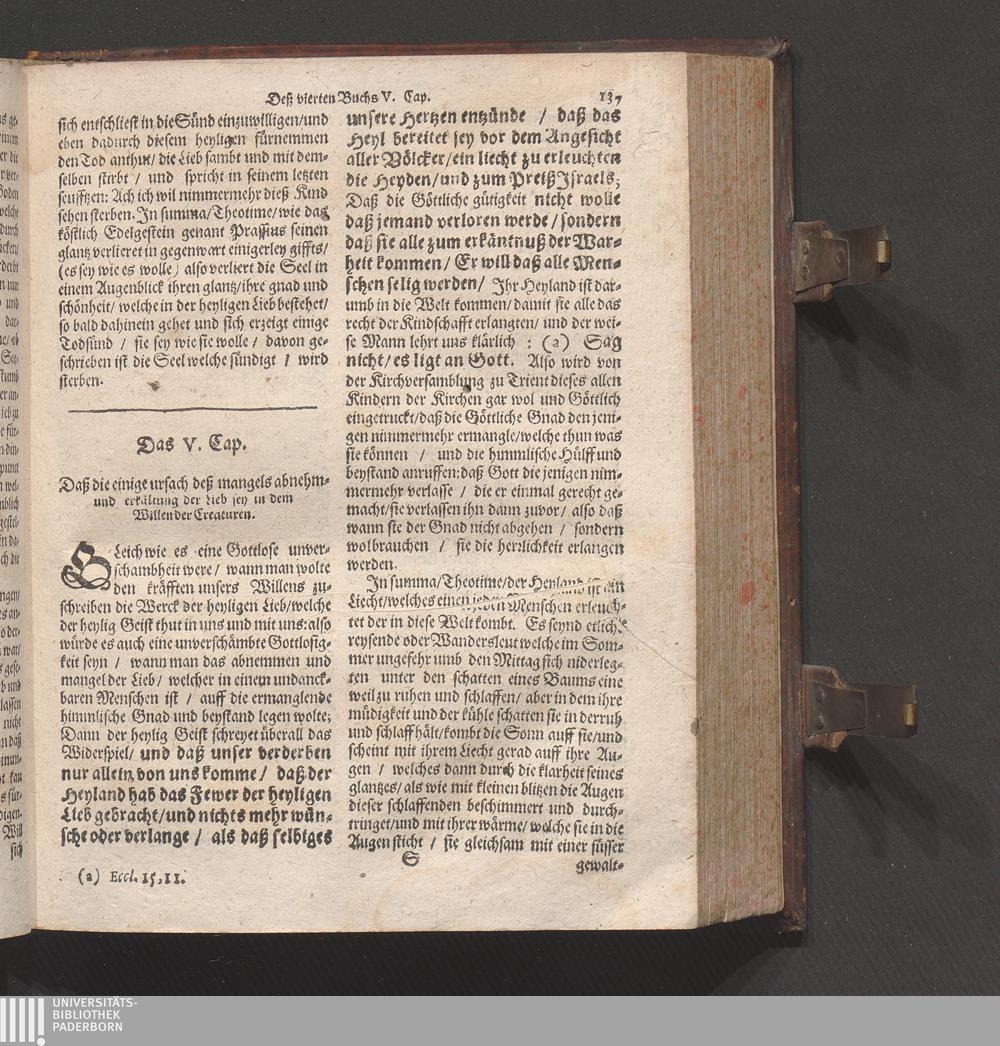 Deß vierten Buchs V. Cap. 137
sich entschliest in die Sünd einzuwilligen/und
eben dadurch diesem heyligen fürnemmen
den Tod anthut/ die Lieb sambt und mit dem-
selben stirbt / und spricht in seinem letzten
seufftzen: Ach ich wil nimmermehr dieß Kind
sehen sterben. In summa/Theotime/wie das
köstlich Edelgestein genant Prassius seinen
glantz verlieret in gegenwart einigerley giffts/
(es sey wie es wolle) also verliert die Seel in
einem Augenblick ihren glantz/ihre gnad und
schönheit/ welche in der heyligen Lieb bestehet/
so bald dahinein gehet und sich erzeigt einige
Todsünd / sie sey wie sie wolle / davon ge-
schrieben ist die Seel welche sündigt / wird
sterben.
Das V. Cap.
Daß die einige ursach deß mangels abnehm-
und erkältung der Lieb sey in dem
Willen der Creaturen.
GLeich wie es eine Gottlose unver-
schambheit were / wann man wolte
den kräfften unsers Willens zu-
schreiben die Werck der heyligen Lieb/welche
der heylig Geist thut in uns und mit uns: also
würde es auch eine unverschämbte Gottlosig-
keit seyn / wann man das abnemmen und
mangel der Lieb/ welcher in einem undanck-
baren Menschen ist / auff die ermanglende
himmlische Gnad und beystand legen wolte;
Dann der heylig Geist schreyet überall das
Widerspiel/ und daß unser verderben
nur allein von uns komme/ daß der
Heyland hab das Fewer der heyligen
Lieb gebracht/und nichts mehr wün-
sche oder verlange / als daß selbiges
(a) Eccl. 15, 11.
unsere Hertzen entzünde / daß das
Heyl bereitet sey vor dem Angesicht
aller Völcker/ein liecht zu erleuchten
die Heyden/und zum Preiß Israels;
Daß die Göttliche gütigkeit nicht wolle
daß jemand verloren werde/sondern
daß sie alle zum erkäntnuß der War-
heit kommen/ Er will daß alle Men-
schen selig werden/ Ihr Heyland ist dar-
umb in die Welt kommen/damit sie alle das
recht der Kindschafft erlangten/ und der wei-
se Mann lehrt uns klärlich : (a) Sag
nicht/es ligt an Gott. Also wird von
der Kirchversamblung zu Trient dieses allen
Kindern der Kirchen gar wol und Göttlich
eingetruckt/daß die Göttliche Gnad den jeni-
gen nimmermehr ermangle/welche thun was
sie können / und die himmlische Hülff und
beystand anruffen: daß Gott die jenigen nim-
mermehr verlasse / die er einmal gerecht ge-
macht/sie verlassen ihn dann zuvor/ also daß
wann sie der Gnad nicht abgehen / sondern
wolbrauchen / sie die herzlichkeit erlangen
werden.
In summa/Theotime/der Heyland ist ein
Liecht/welches einen jeden Menschen erleuch-
tet der in diese Welt kombt. Es seynd etliche
reysende oder Wandersleut welche im Som-
mer ungefehr umb den Mittag sich niderleg-
ten unter den schatten eines Baums eine
weil zu ruhen und schlaffen/ aber in dem ihre
müdigkeit und der kühle schatten sie in der ruh
und schlaff hält/kombt die Sonn auff sie/und
scheint mit ihrem Liecht gerad auff ihre Au-
gen / welches dann durch die klarheit seines
glantzes/als wie mit kleinen blitzen die Augen
dieser schlaffenden beschimmert und durch-
tringet/und mit ihrer wärme/ welche sie in die
Augen sticht / sie gleichsam mit einer süsser
S gewalt-
UNIVERSITÄTS-
BIBLIOTHEK
PADERBORN